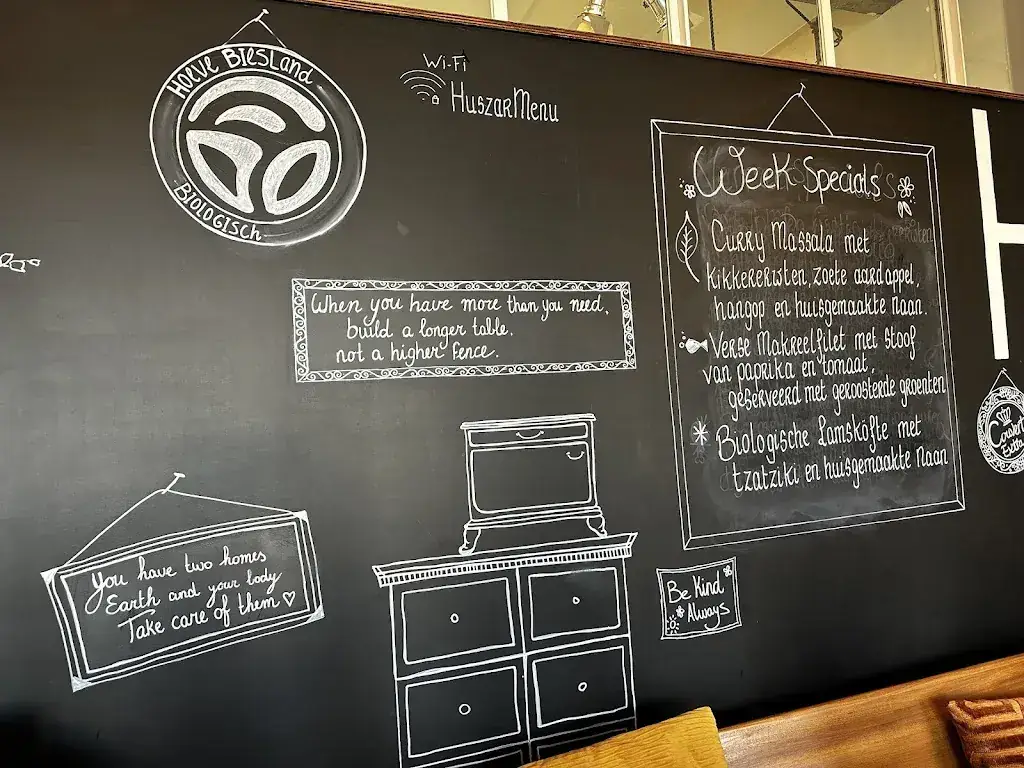 Hoeve Biesland
Biologisch
Wi-Fi
HuszarMenu
When you have more than you need,
build a longer table.
not a higher fence.
You have two homes
Earth and your body
Take care of them
Week Specials
Curry Massala met
kikkererwten, zoete aardappel,
hangop en huisgemaakte Naan.
Verse Makreelfilet met stoof
van paprika en tomaat,
geserveerd met geroosterde groenten
Biologische Lamsköfte met
tzatziki en huisgemaakte Naan
Be Kind
Always
H